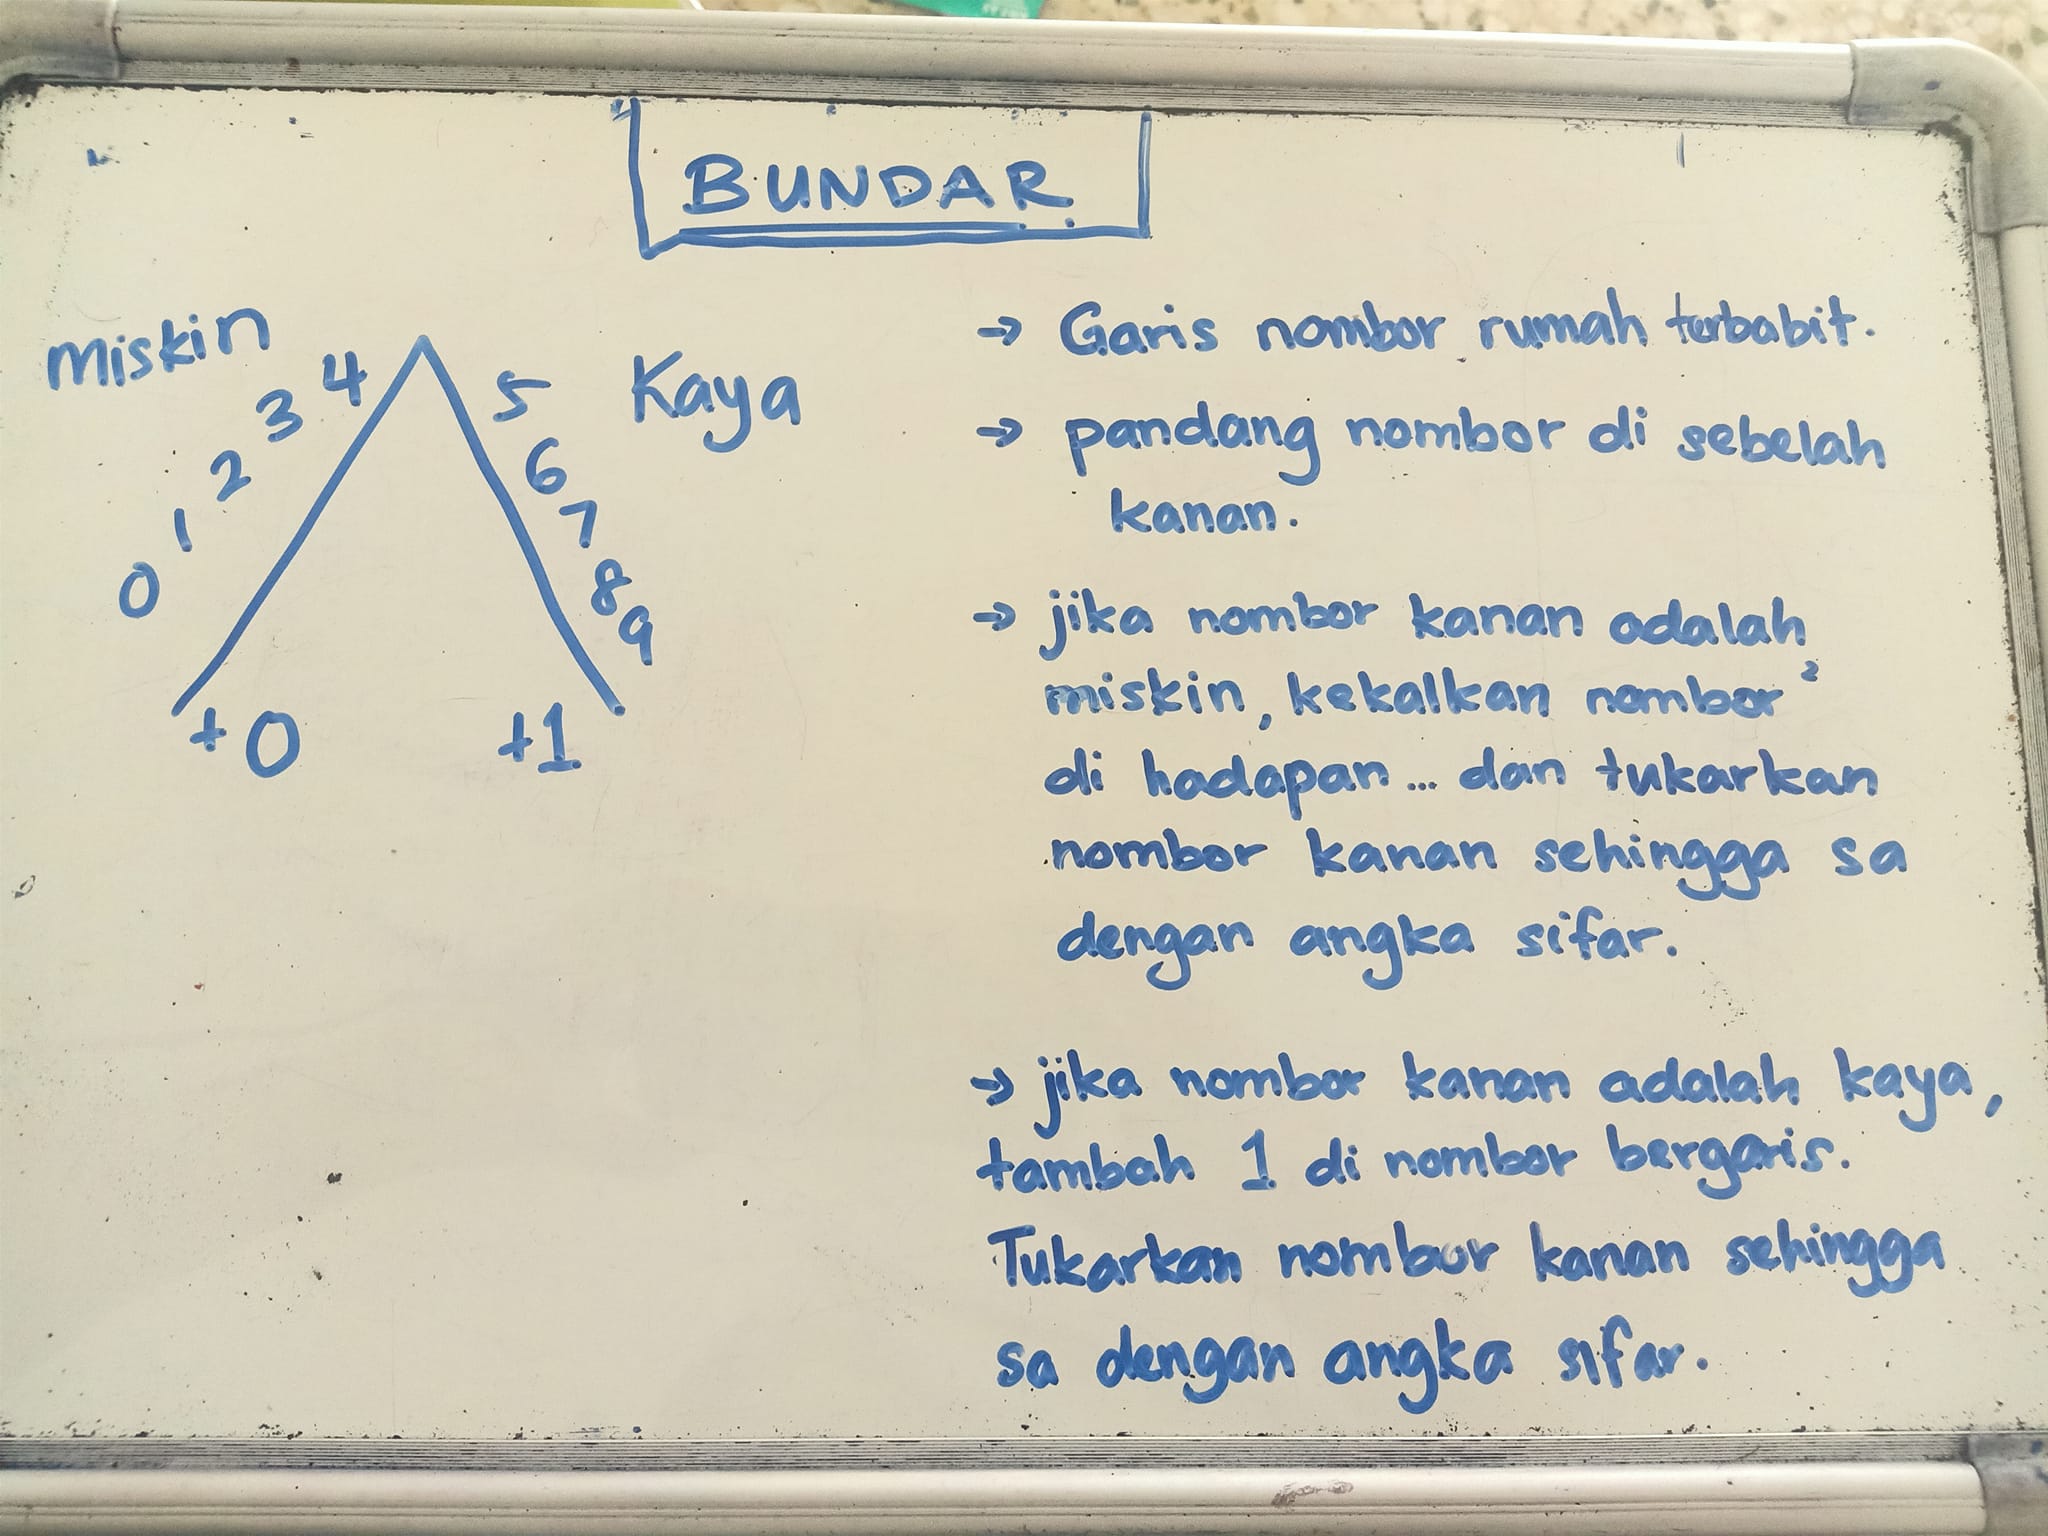 BUNDAR
Miskin
4
3
2
1
0
+0
Kaya
5
6
7
8
9
+1
→ Garis nombor rumah terbabit.
→ pandang nombor di sebelah
kanan.
→ jika nombor kanan adalah
miskin, kekalkan nombor²
di hadapan... dan tukarkan
nombor kanan sehingga sa
dengan angka sifar.
→ jika nombor kanan adalah kaya,
tambah 1 di nombor bergaris.
Tukarkan nombor kanan sehingga
sa dengan angka sifar.